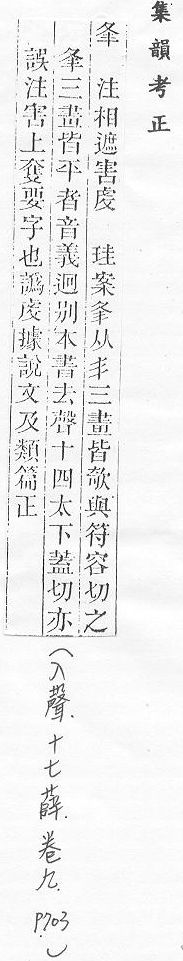 集韻考正
夆 注相遮害虔 珪案夆从丯三畫皆欹與符容切之
夆三畫皆平者音義迴别本書去聲十四太下蓋切亦
誤注害上奪要字也譌虔據說文及類篇正
(入聲.十七薛.卷九.P703)